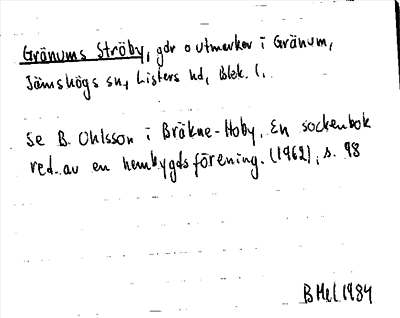 Gränums Ströby, gdr o utmarker i Gränum,
Jämshögs sn, Listers hd, Blek. l.
Se B. Ohlsson i Bräkne-Hoby. En sockenbok
red. av en hembygdsförening. (1962), s. 98
BHel 1984